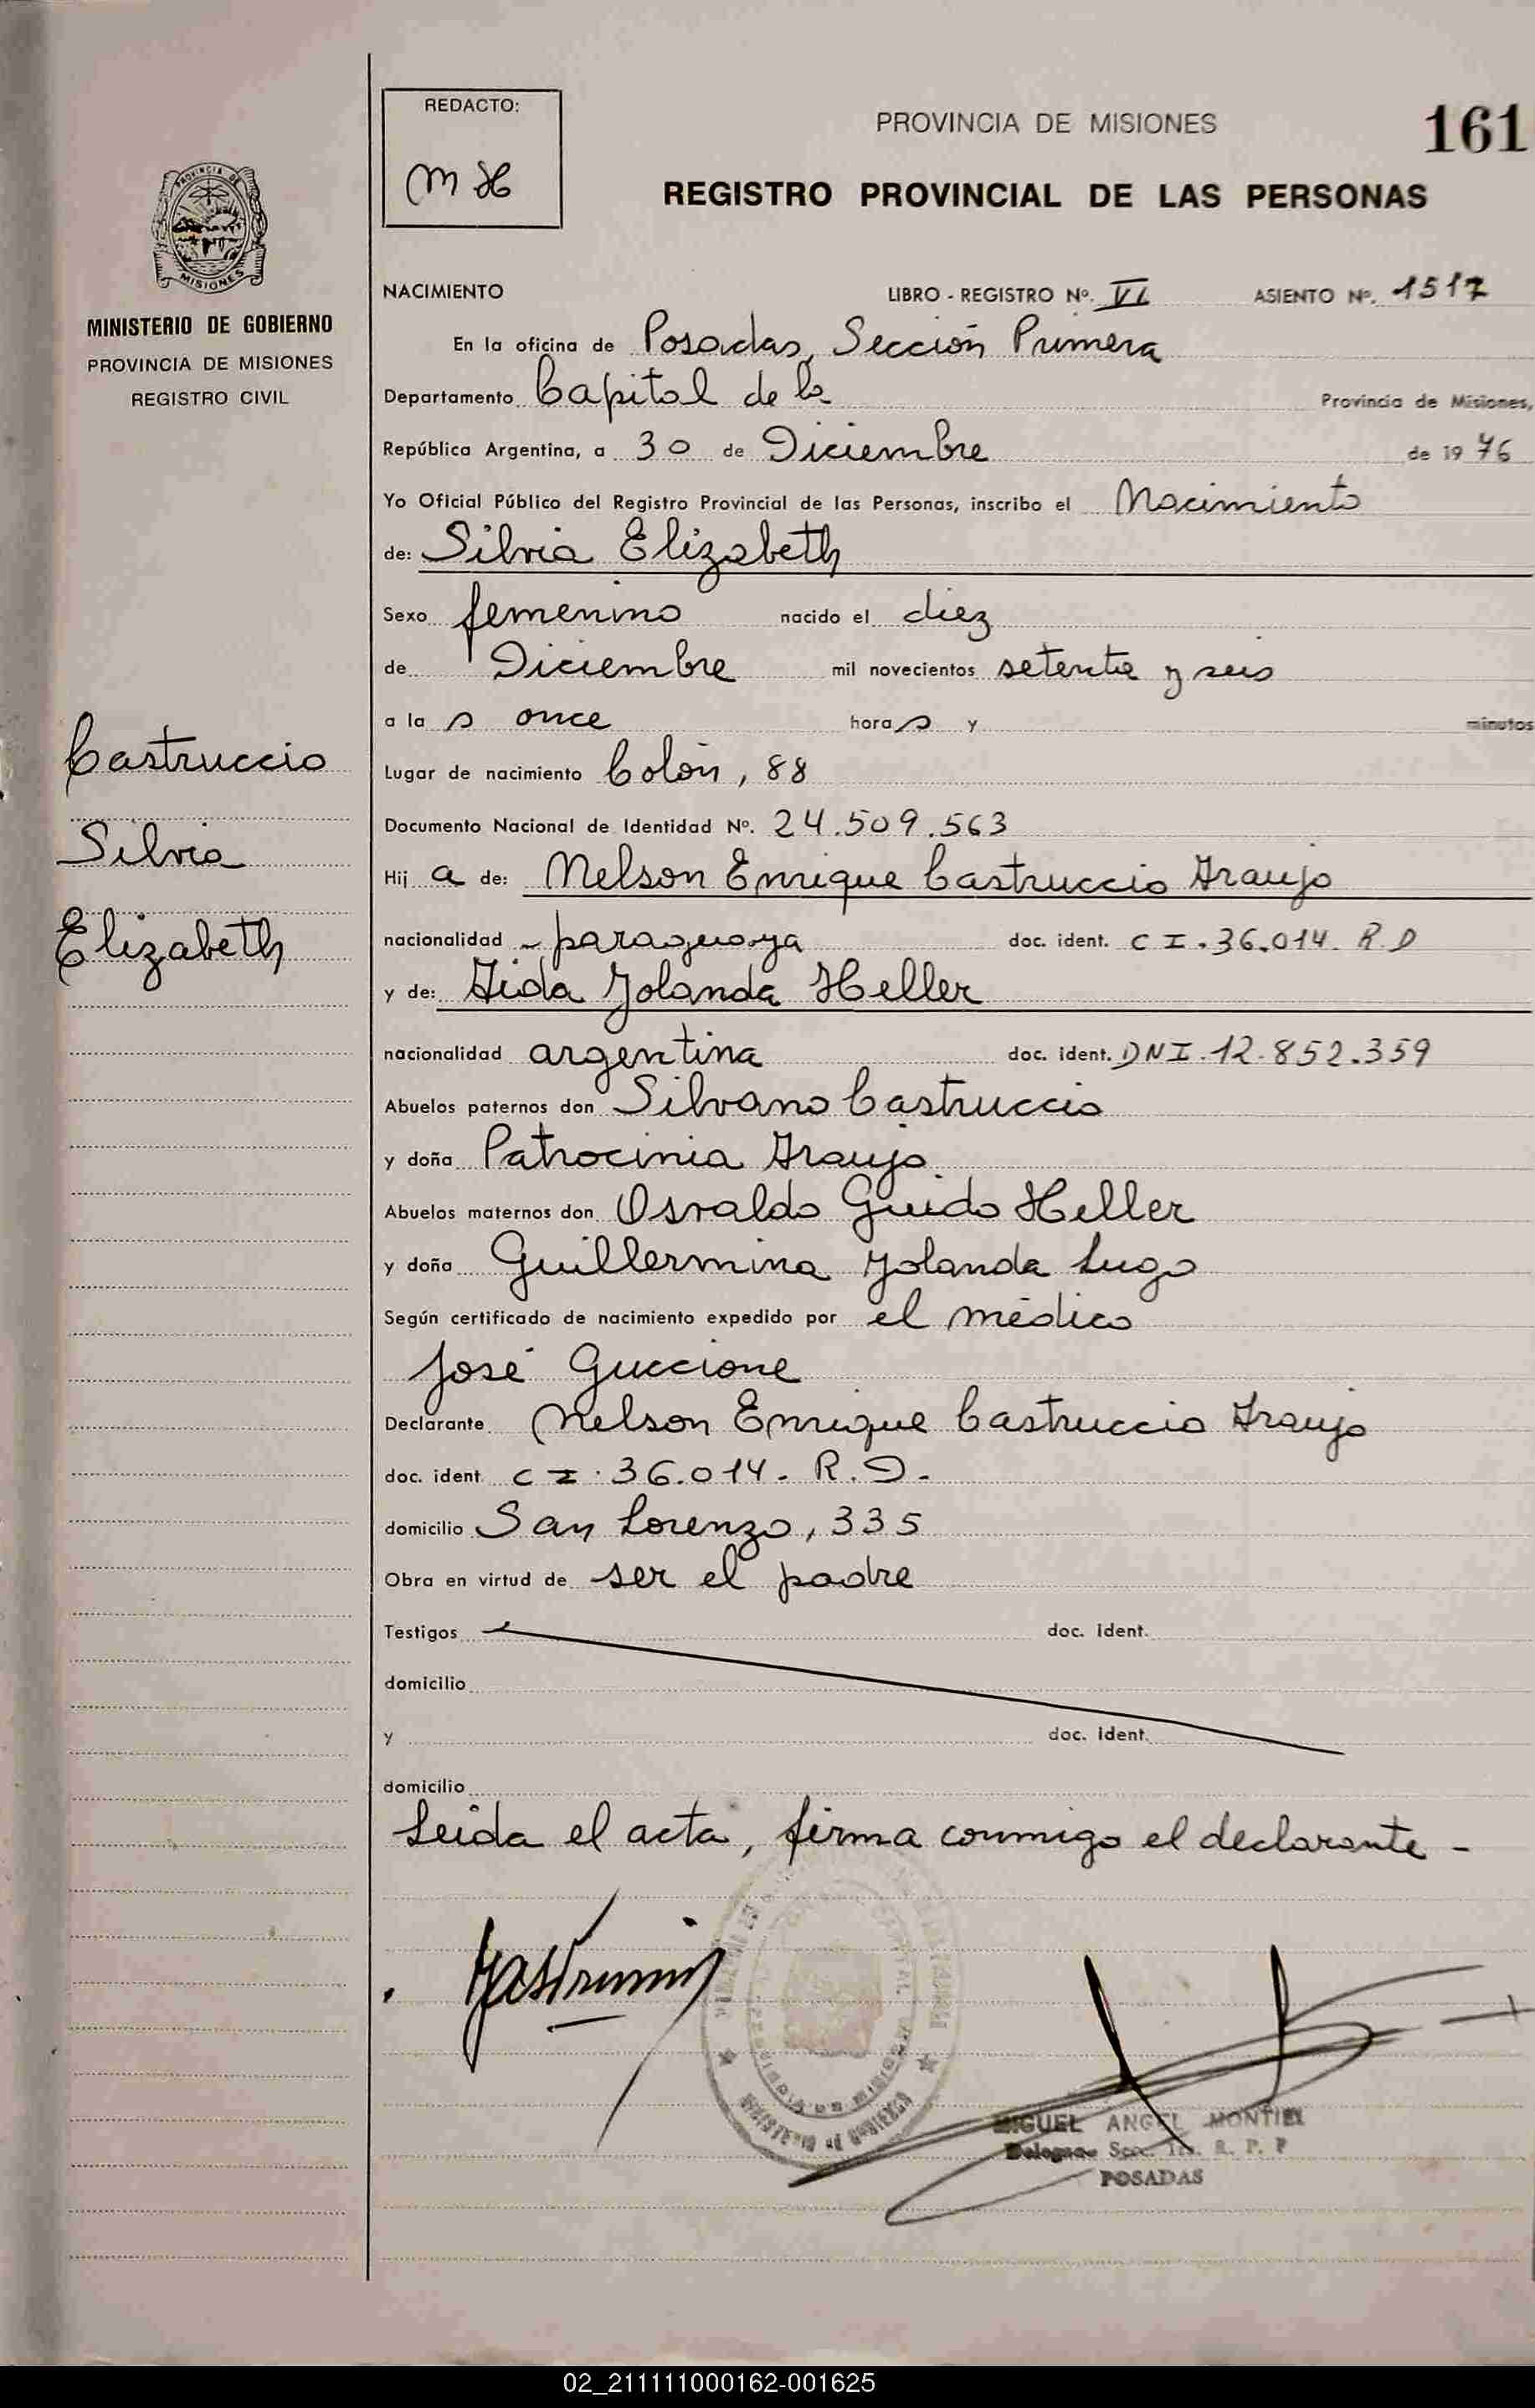 REDACTO:
PROVINCIA DE MISIONES
161
REGISTRO PROVINCIAL DE LAS PERSONAS
PROVINCIA DE
MISIONES
MINISTERIO DE GOBIERNO
PROVINCIA DE MISIONES
REGISTRO CIVIL
Castruccio
Silvia
Elizabeth
NACIMIENTO LIBRO - REGISTRO Nº. VI ASIENTO Nº. 1517
En la oficina de Posadas, Sección Primera
Departamento Capital de la Provincia de Misiones,
República Argentina, a 30 de Diciembre de 1976
Yo Oficial Público del Registro Provincial de las Personas, inscribo el Nacimiento
de: Silvia Elizabeth
Sexo femenino nacido el diez
de Diciembre mil novecientos setenta y seis
a la s once hora s y minutos
Lugar de nacimiento Colón, 88
Documento Nacional de Identidad Nº. 24.509.563
Hij a de: Nelson Enrique Castruccio Araujo
nacionalidad paraguaya doc. ident. C I. 36.014. R.D
y de: Aida Yolanda Heller
nacionalidad argentina doc. ident. DNI. 12.852.359
Abuelos paternos don Silvano Castruccio
y doña Patrocinia Araujo.
Abuelos maternos don Osvaldo Guido Heller
y doña Guillermina Yolanda Lugo
Según certificado de nacimiento expedido por el médico
José Guccione
Declarante Nelson Enrique Castruccio Araujo
doc. ident C I. 36.014. R.D.
domicilio San Lorenzo, 335
Obra en virtud de ser el padre
Testigos doc. ident.
domicilio
y doc. ident.
domicilio
Leida el acta, firma conmigo el declarante -
MIGUEL ANGEL MONTIEL
R. P. P
POSADAS
02_211111000162-001625